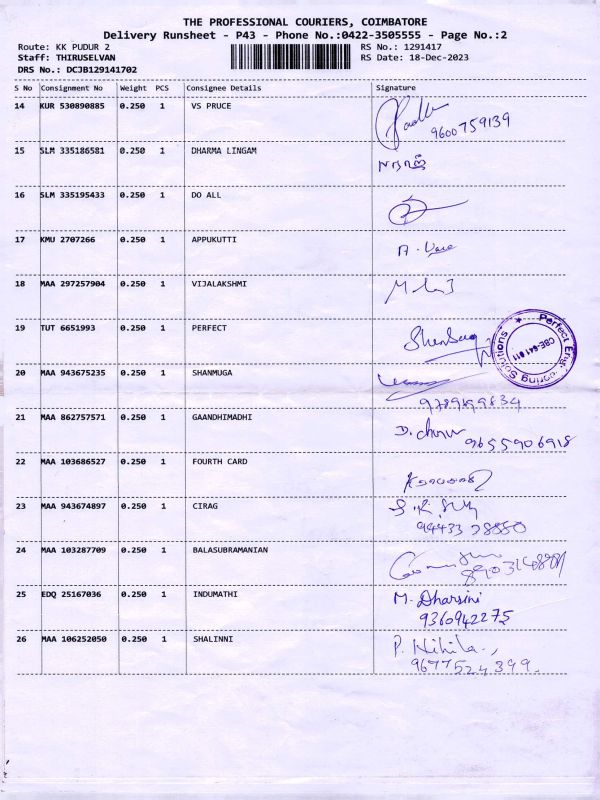 THE PROFESSIONAL COURIERS, COIMBATORE
Delivery Runsheet - P43 - Phone No.:0422-3505555 - Page No.:2
Route: KK PUDUR 2 RS No.: 1291417
Staff: THIRUSELVAN RS Date: 18-Dec-2023
DRS No.: DCJB129141702
S No Consignment No Weight PCS Consignee Details Signature
14 KUR 530890885 0.250 1 VS PRUCE
9600759139
15 SLM 335186581 0.250 1 DHARMA LINGAM
16 SLM 335195433 0.250 1 DO ALL
17 KMU 2707266 0.250 1 APPUKUTTI
18 MAA 297257904 0.250 1 VIJALAKSHMI
19 TUT 6651993 0.250 1 PERFECT
Perfect Engineering Solutions
CBE-641 011
20 MAA 943675235 0.250 1 SHANMUGA
9789899834
21 MAA 862757571 0.250 1 GAANDHIMADHI
9655906918
22 MAA 103686527 0.250 1 FOURTH CARD
23 MAA 943674897 0.250 1 CIRAG
94433 28850
24 MAA 103287709 0.250 1 BALASUBRAMANIAN
25 EDQ 25167036 0.250 1 INDUMATHI M. Dharsini
9360942275
26 MAA 106252050 0.250 1 SHALINNI P. Nihila.,
9677524399.